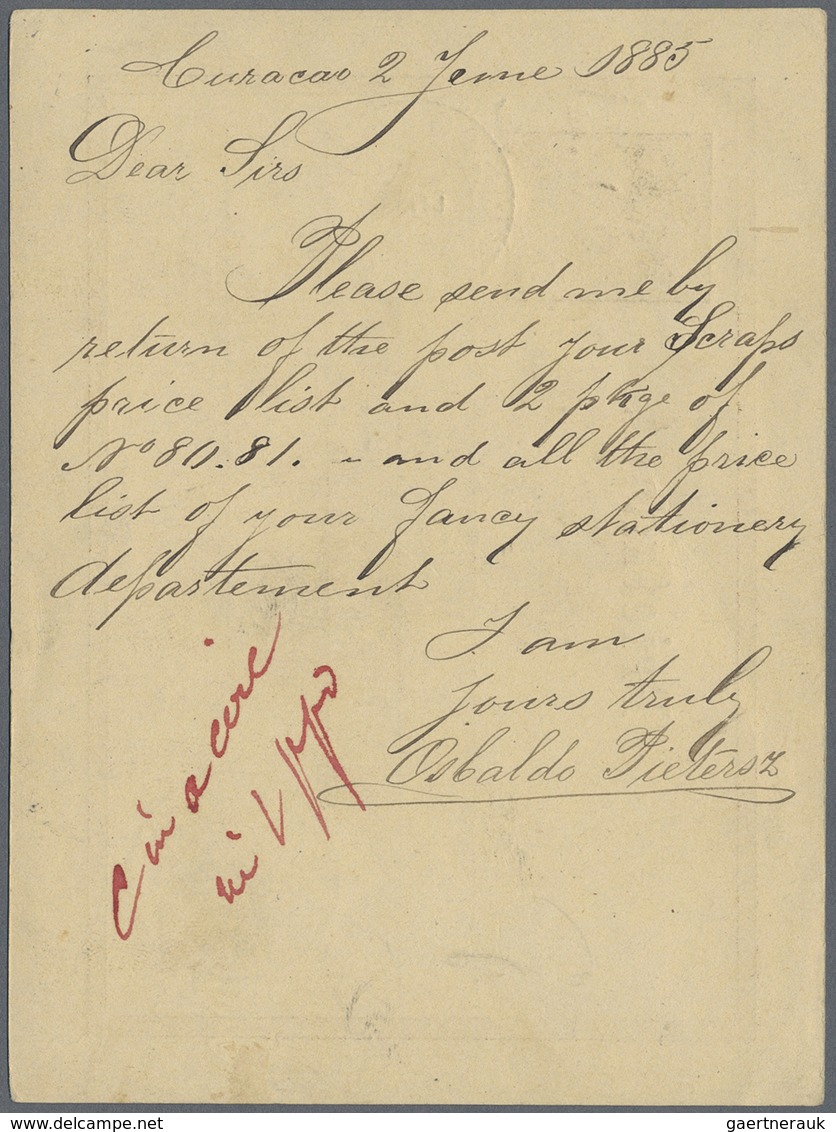 Curacao 2 June 1885
Dear Sirs
Please send me by
return of the post your Scraps
price list and 2 pkge of
No 80.81. - and all the price
list of your fancy stationery
departement
I am
yours truly
Osbaldo Pietersz
gaertnerauk